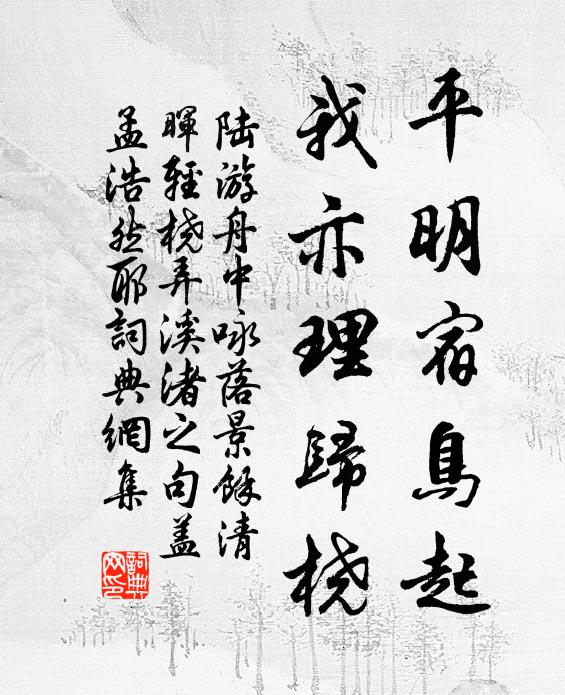 平明宿鳥起
我亦理歸橈
陆游舟中咏落景餘清
暉輕橈弄溪渚之句盖
孟浩然耶詞典網集
詞典网印